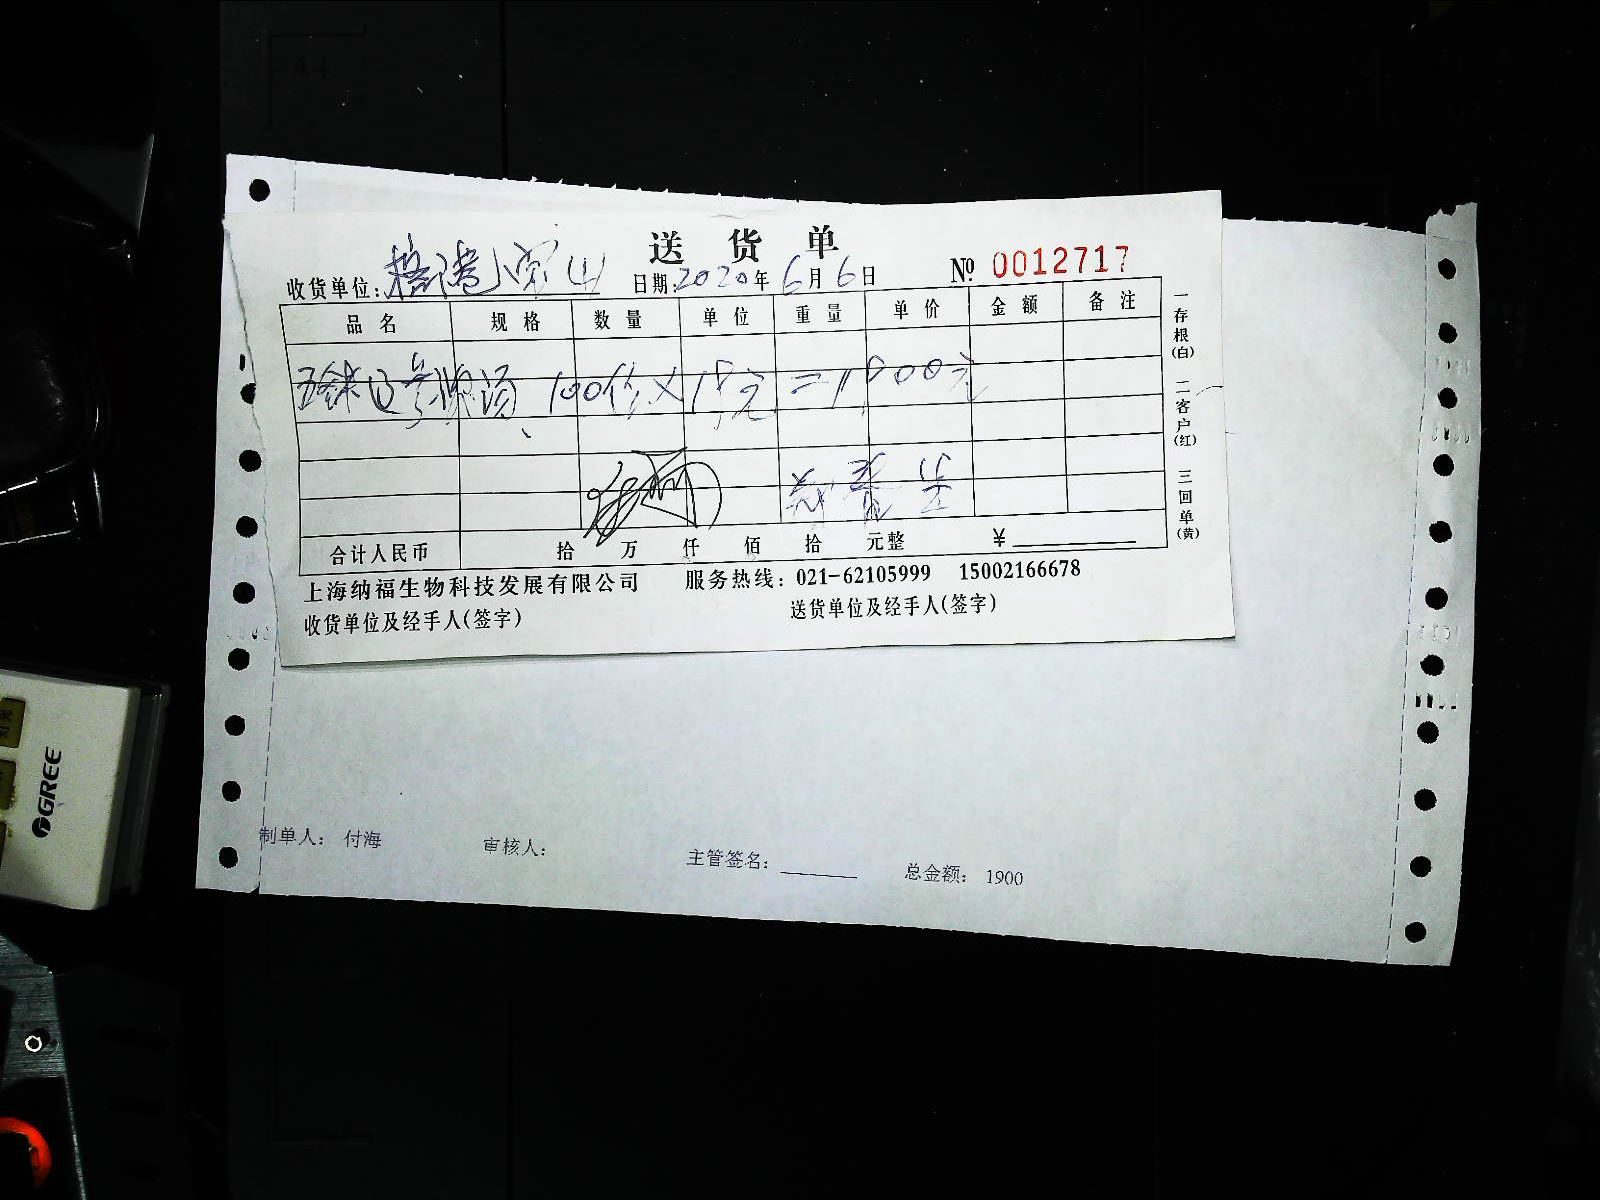 送货单
收货单位: 日期: 2020年6月6日 № 0012717
品名 规格 数量 单位 重量 单价 金额 备注
100份×18元=1800元
合计人民币 拾 万 仟 佰 拾 元整 ¥
上海纳福生物科技发展有限公司 服务热线: 021-62105999 15002166678
收货单位及经手人(签字) 送货单位及经手人(签字)
一存根(白) 二客户(红) 三回单(黄)
制单人: 付海 审核人: 主管签名: 总金额: 1900
GREE